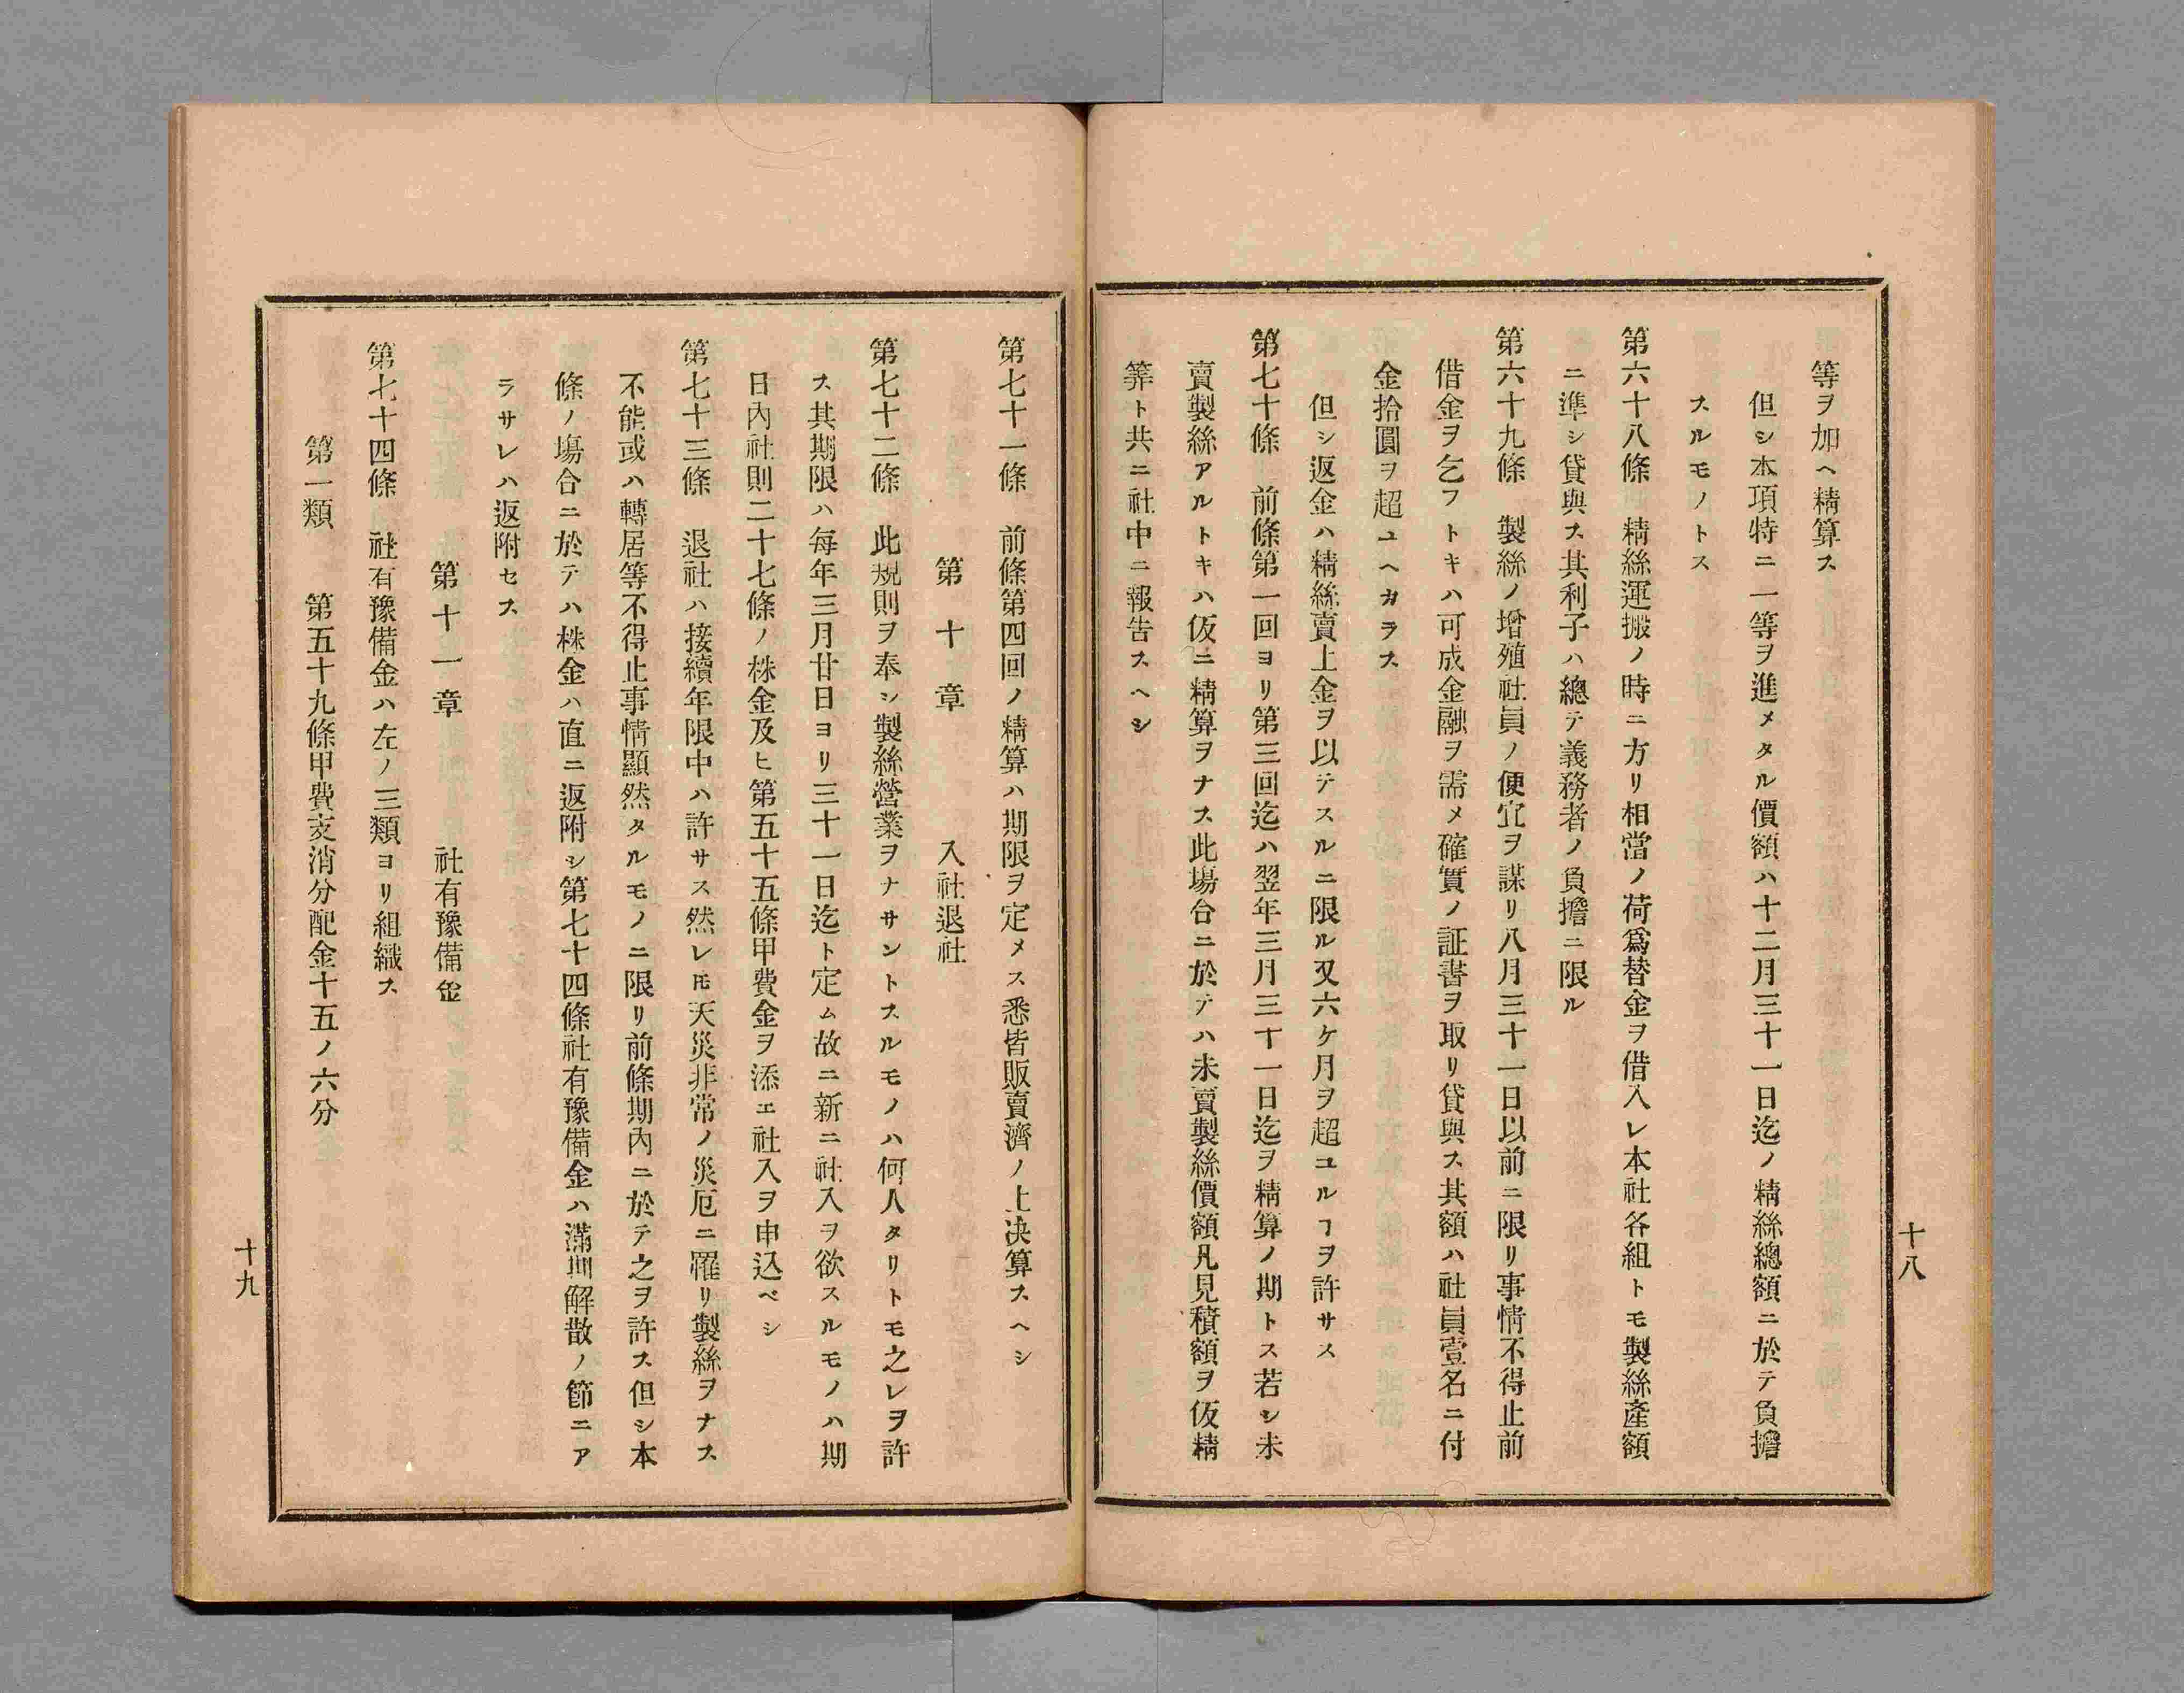 等ヲ加ヘ精算ス
但シ本項特ニ一等ヲ進メタル價額ハ十二月三十一日迄ノ精絲總額ニ於テ負擔
スルモノトス
第六十八條　精絲運搬ノ時ニ方リ相當ノ荷爲替金ヲ借入レ本社各組トモ製絲產額
ニ準シ貸與ス其利子ハ總テ義務者ノ負擔ニ限ル
第六十九條　製絲ノ增殖社員ノ便宜ヲ謀リ八月三十一日以前ニ限リ事情不得止前
借金ヲ乞フトキハ可成金融ヲ需メ確實ノ証書ヲ取リ貸與ス其額ハ社員壹名ニ付
金拾圓ヲ超ユヘカラス
但シ返金ハ精絲賣上金ヲ以テスルニ限ル又六ケ月ヲ超ユルヿヲ許サス
第七十條　前條第一回ヨリ第三回迄ハ翌年三月三十一日迄ヲ精算ノ期トス若シ未
賣製絲アルトキハ仮ニ精算ヲナス此場台ニ於テハ未賣製絲價額凡見積額ヲ仮精
筭ト共ニ社中ニ報告スヘシ
十八
第七十一條　前條第四回ノ精算ハ期限ヲ定メス悉皆販賣濟ノ上決算スヘシ
第十章　入社退社
第七十二條　此規則ヲ奉シ製絲營業ヲナサントスルモノハ何人タリトモ之レヲ許
ス其期限ハ每年三月廿日ヨリ三十一日迄ト定ム故ニ新ニ社入ヲ欲スルモノハ期
日內社則二十七條ノ株金及ヒ第五十五條甲費金ヲ添エ社入ヲ申込ベシ
第七十三條　退社ハ接續年限中ハ許サス然レ𪜈天災非常ノ災厄ニ罹リ製絲ヲナス
不能或ハ轉居等不得止事情顯然タルモノニ限リ前條期內ニ於テ之ヲ許ス但シ本
條ノ塲合ニ於テハ株金ハ直ニ返附シ第七十四條社有豫備金ハ滿期解散ノ節ニア
ラサレハ返附セス
第十一章　社有豫備金
第七十四條　社有豫備金ハ左ノ三類ヨリ組織ス
第一類　第五十九條甲費支消分配金十五ノ六分
十九